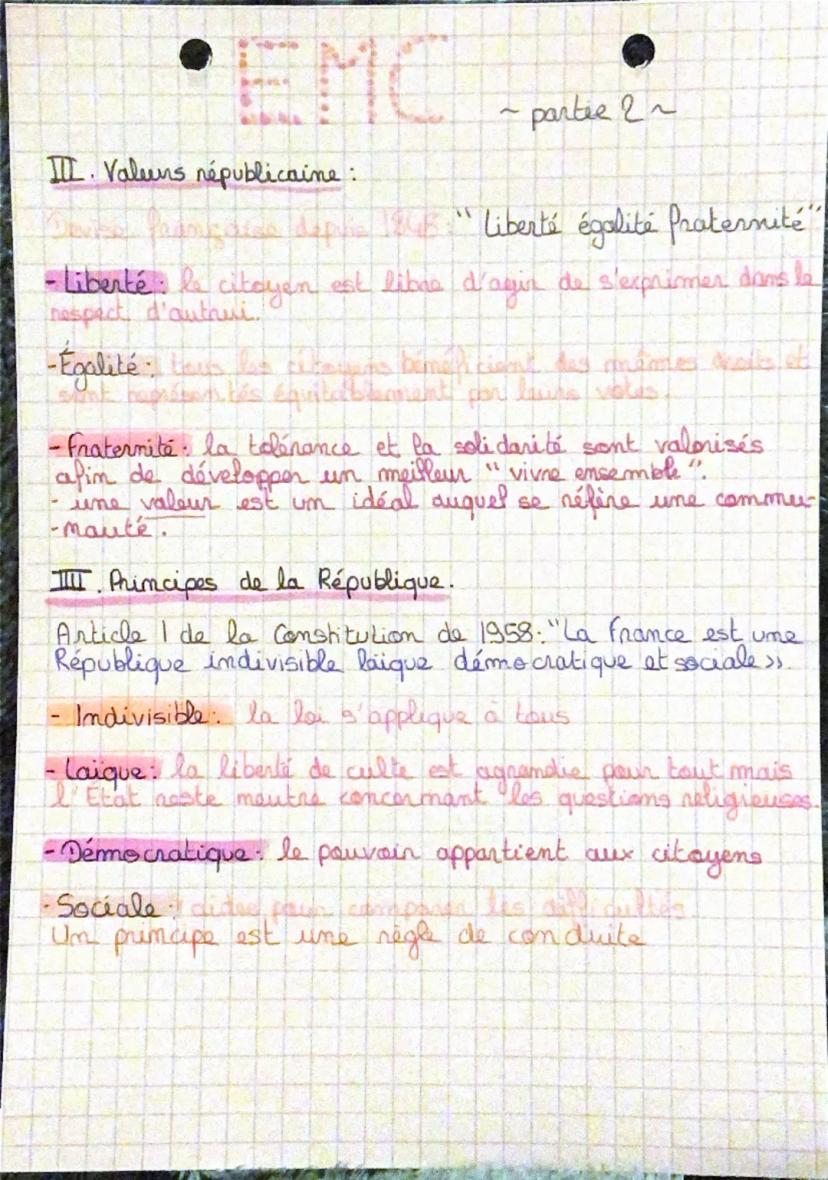 EMC
~ partie 2 ~
III. Valeurs républicaine :
Devise française depuis 1848: "Liberté égalité fraternité"
- Liberté : le citoyen est libre d'agir de s'exprimer dans le
respect d'autrui.
- Égalité : tous les citoyens bénéficient des mêmes droits et
sont représentés équitablement par leurs votes.
- fraternité : la tolérance et la solidarité sont valorisés
afin de développer un meilleur "vivre ensemble".
- une valeur est un idéal auquel se réfère une commu-
-nauté.
IIII. Principes de la République.
Article 1 de la Constitution de 1958: "La France est une
République indivisible laïque démocratique et sociale».
- Indivisible : la loi s'applique à tous
- Laïque : la liberté de culte est pour tout mais
l'État reste neutre concernant les questions religieuses.
- Démocratique : le pouvoir appartient aux citoyens
- Sociale : aides pour les difficultés.
Un principe est une règle de conduite